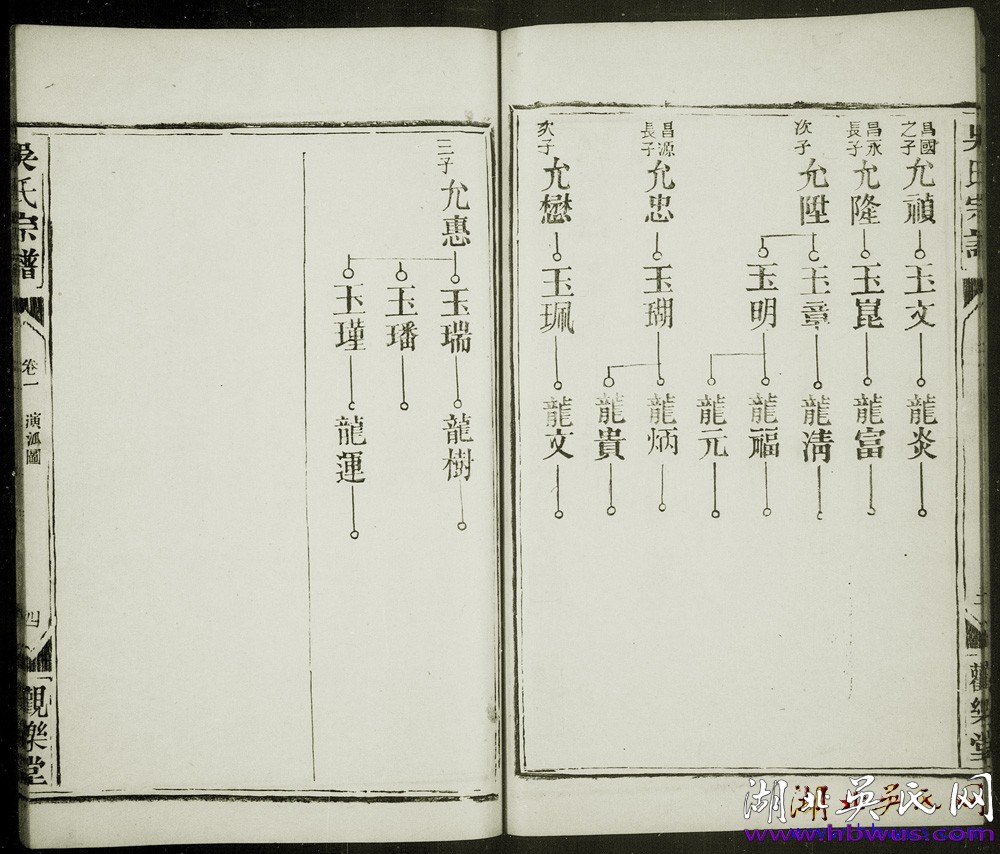 吳氏宗譜
觀樂堂
昌國
之子
允禎
玉文
龍炎
昌永
長子
允隆
玉崑
龍富
次子
允陞
玉章
龍清
玉明
龍福
龍元
昌源
長子
允忠
玉瑚
龍炳
龍貴
次子
允懋
玉珮
龍文
三子
允惠
玉瑞
龍樹
玉璠
玉瑾
龍運
吳氏宗譜
卷一
演派圖
四
觀樂堂
湖北吴氏网
www.hbwus.com